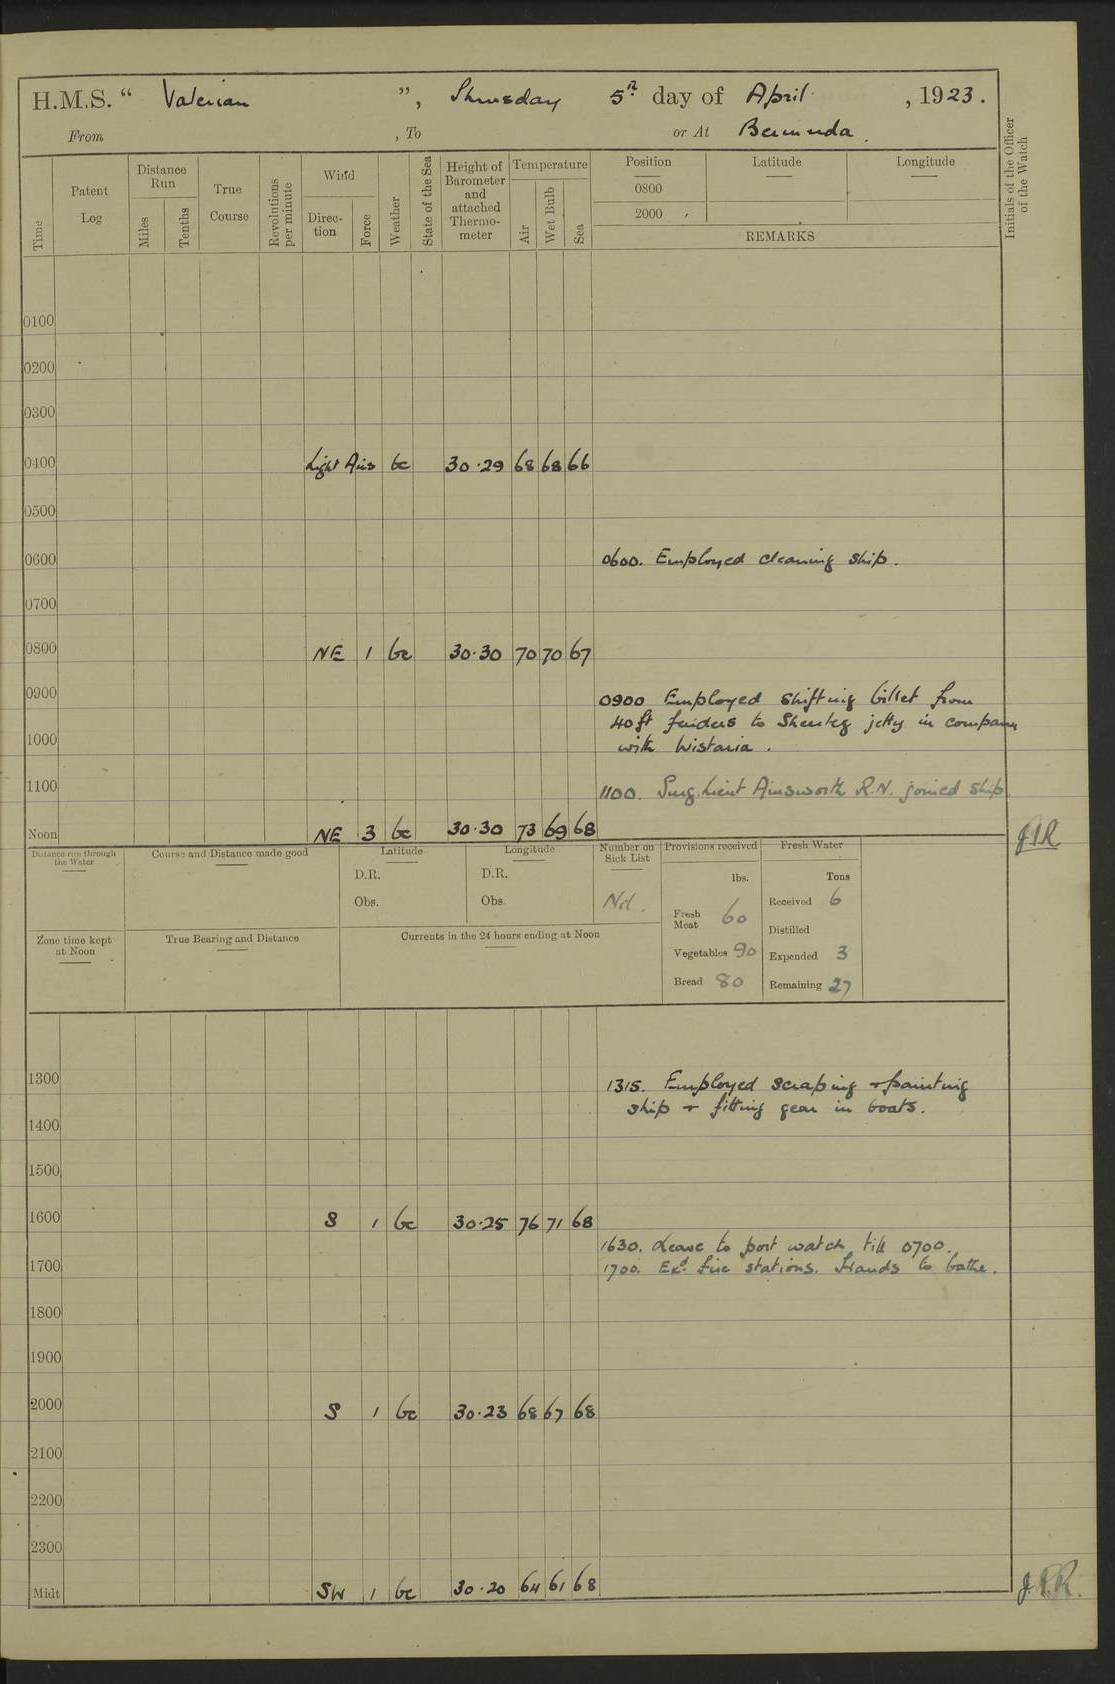 H.M.S. “ Valerian ”, Thursday 5th day of April , 1923.
From , To or At Bermuda.
Time
Patent Log
Distance Run
Miles
Tenths
True Course
Revolutions per minute
Wind
Direc-tion
Force
Weather
State of the Sea
Height of Barometer and attached Thermo-meter
Temperature
Air
Wet Bulb
Sea
Position
0800
2000
Latitude
Longitude
REMARKS
Initials of the Officer of the Watch
0100
0200
0300
0400 Light Airs bc 30.29 68 68 66
0500
0600 0600. Employed cleaning ship.
0700
0800 NE 1 bc 30.30 70 70 67
0900 0900 Employed shifting billet from
40ft fenders to jetty in company
1000 with Wistaria.
1100 1100. Surg. Lieut Ainsworth R.N. joined ship.
Noon NE 3 bc 30.30 73 69 68 J.I.R
Distance run through the Water
Course and Distance made good
Latitude
D.R.
Obs.
Longitude
D.R.
Obs.
Number on Sick List
Nil.
Provisions received
lbs.
Fresh Meat 60
Vegetables 90
Bread 80
Fresh Water
Tons
Received 6
Distilled
Expended 3
Remaining 27
Zone time kept at Noon
True Bearing and Distance
Currents in the 24 hours ending at Noon
1300 1315. Employed scraping & painting
ship & fitting gear in boats.
1400
1500
1600 S 1 bc 30.25 76 71 68
1630. Leave to port watch till 0700.
1700 1700. Exd fire stations. Hands to bathe.
1800
1900
2000 S 1 bc 30.23 68 67 68
2100
2200
2300
Midt SW 1 bc 30.20 64 61 68 J.I.R.